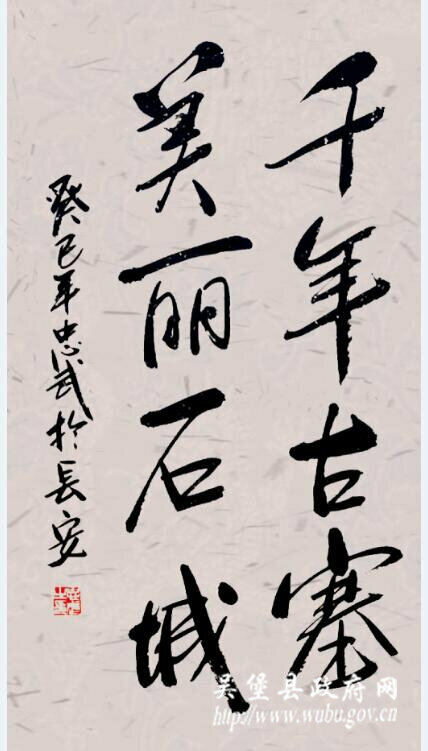 千年古寨
美丽石城
癸巳年忠武於長安
吴堡县政府网
http://www.wubu.gov.cn